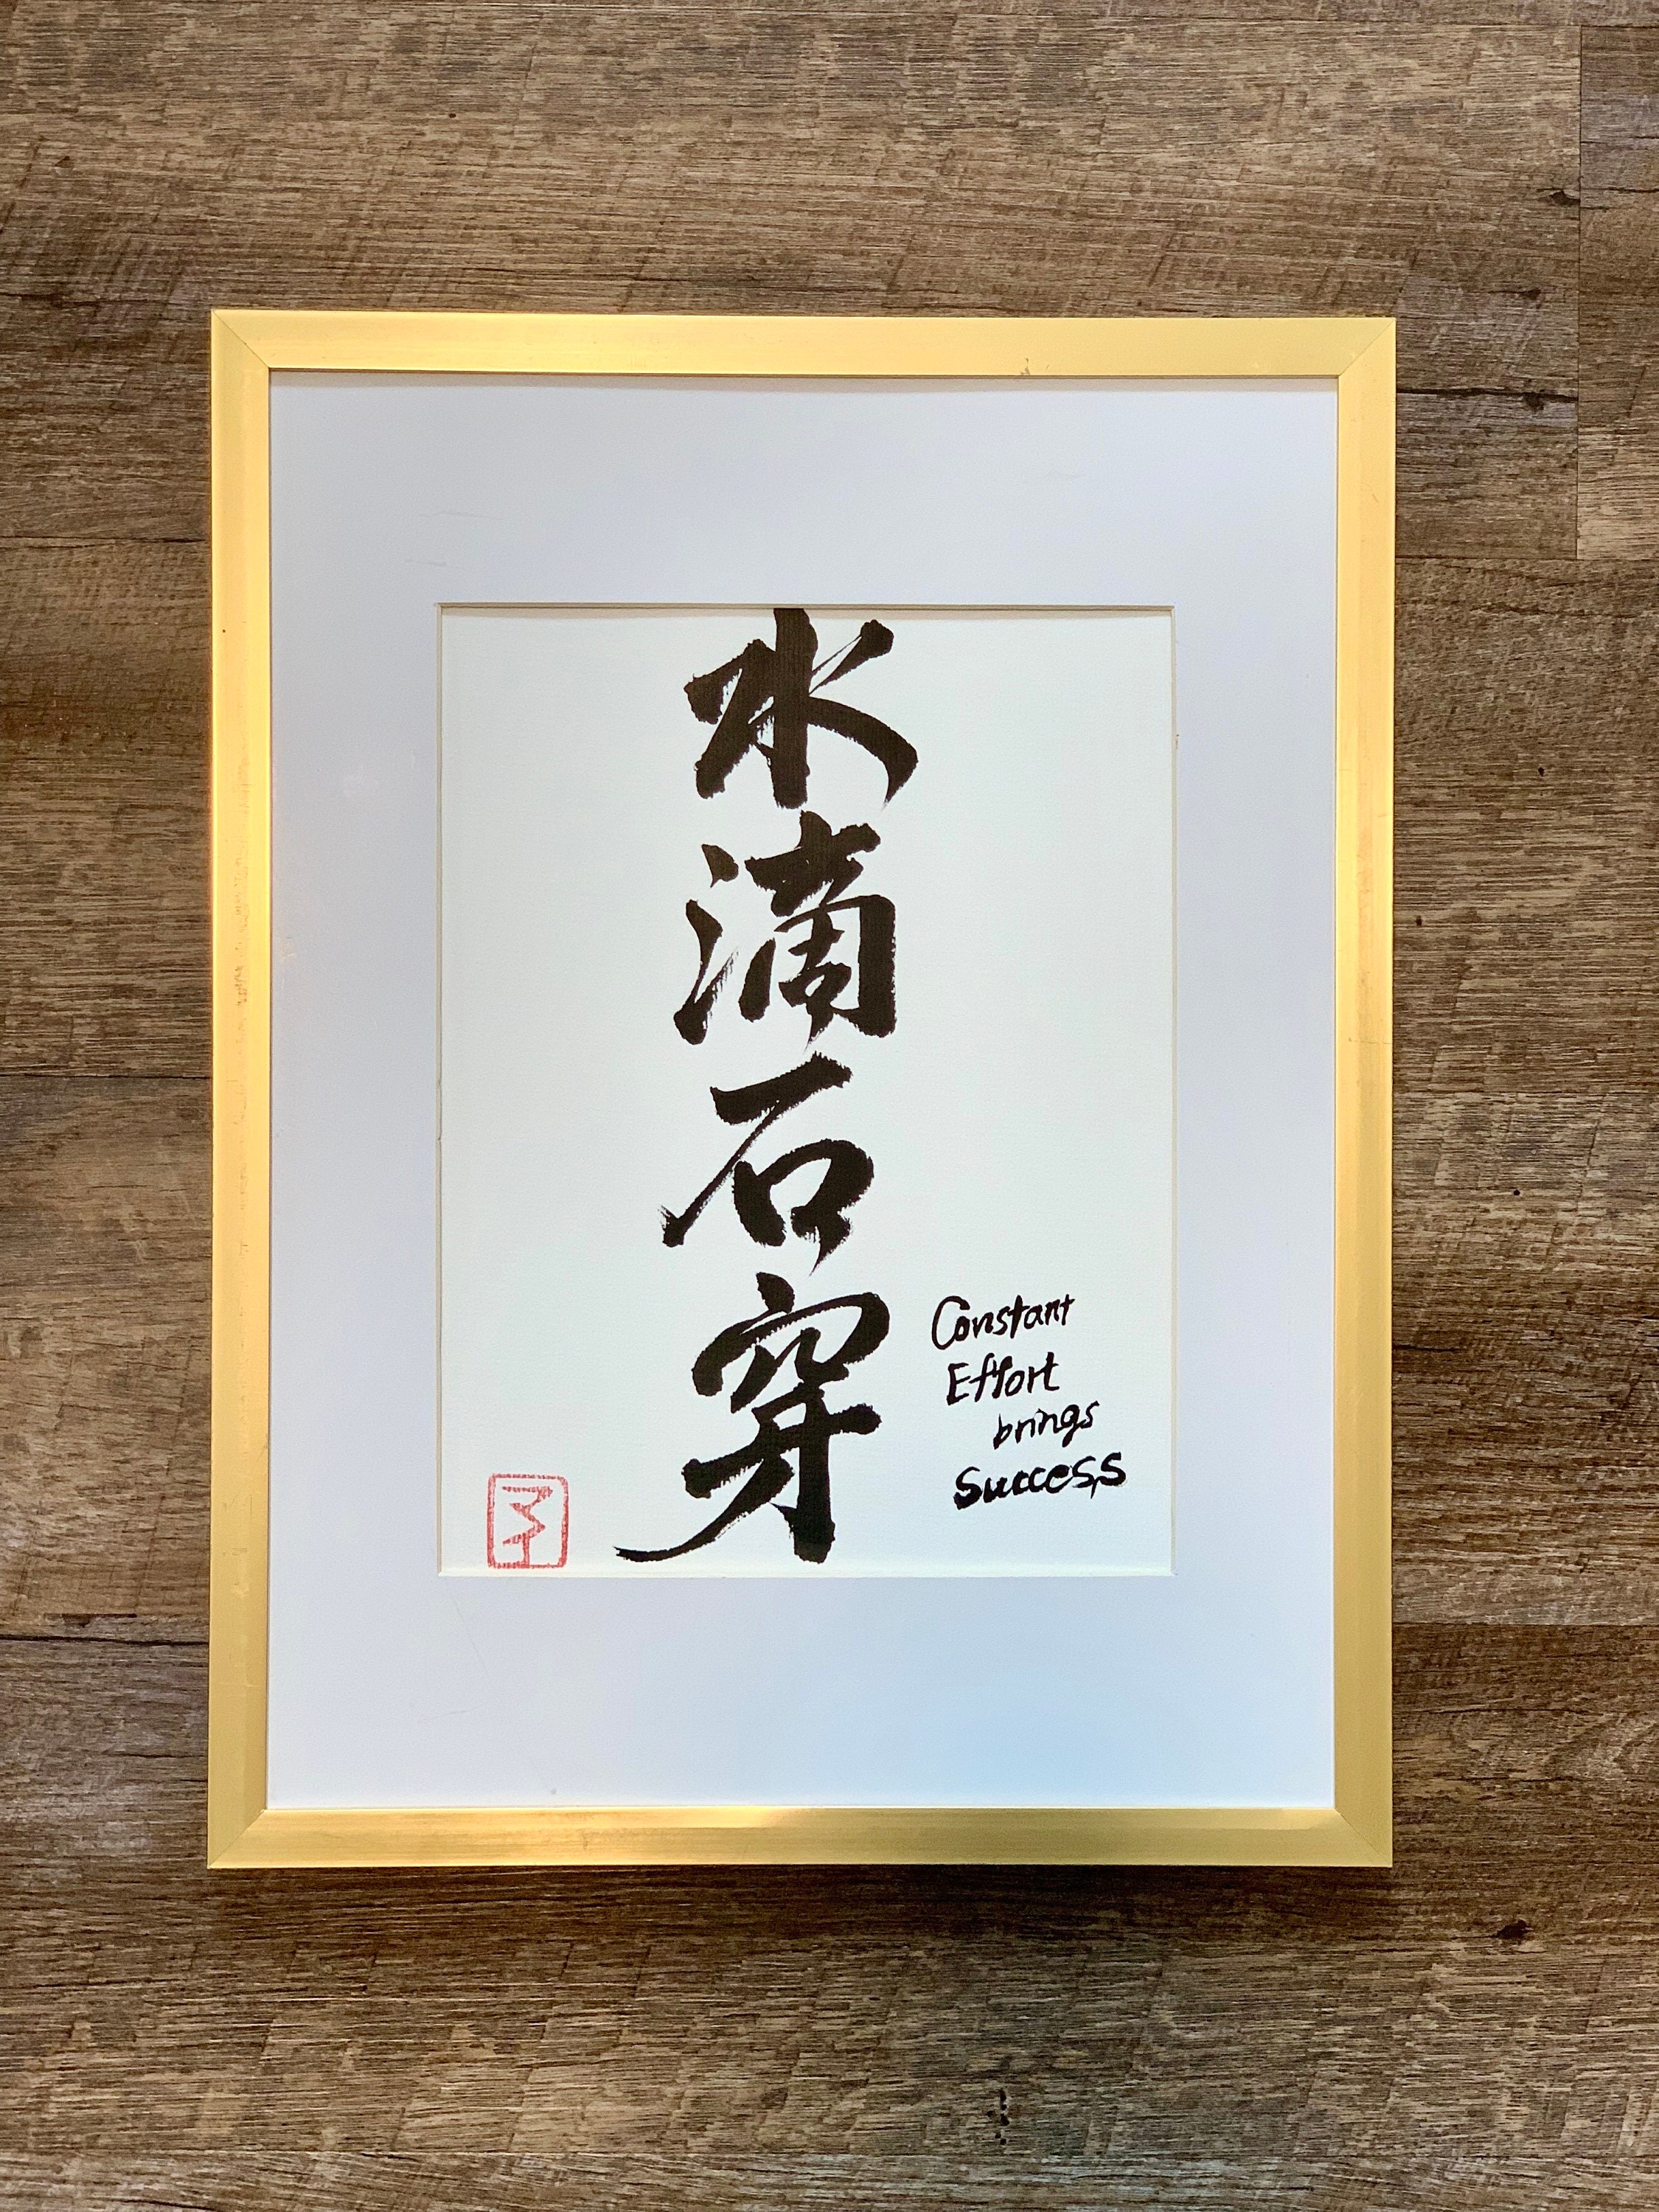 水滴石穿
Constant
Effort
brings
Success